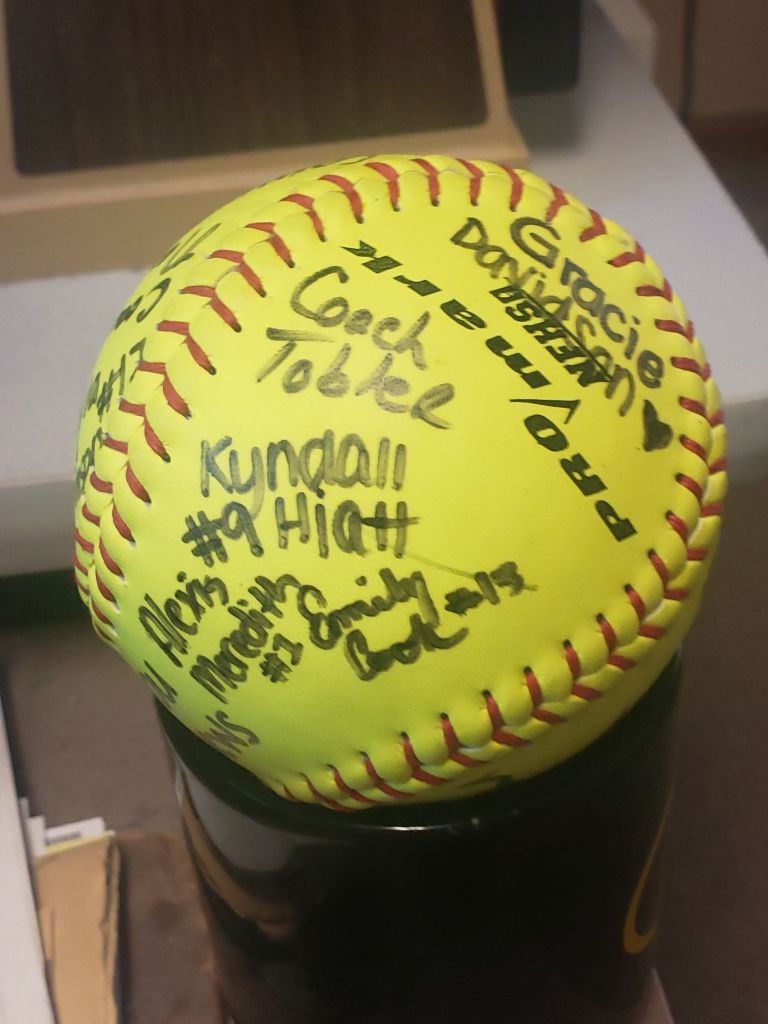 Gracie
Davidson
NFHSA
PROmark
Coach
Tobler
Kyndall
#9 HiaH
Alexis
Meredith
#1
Emily
Cook #13